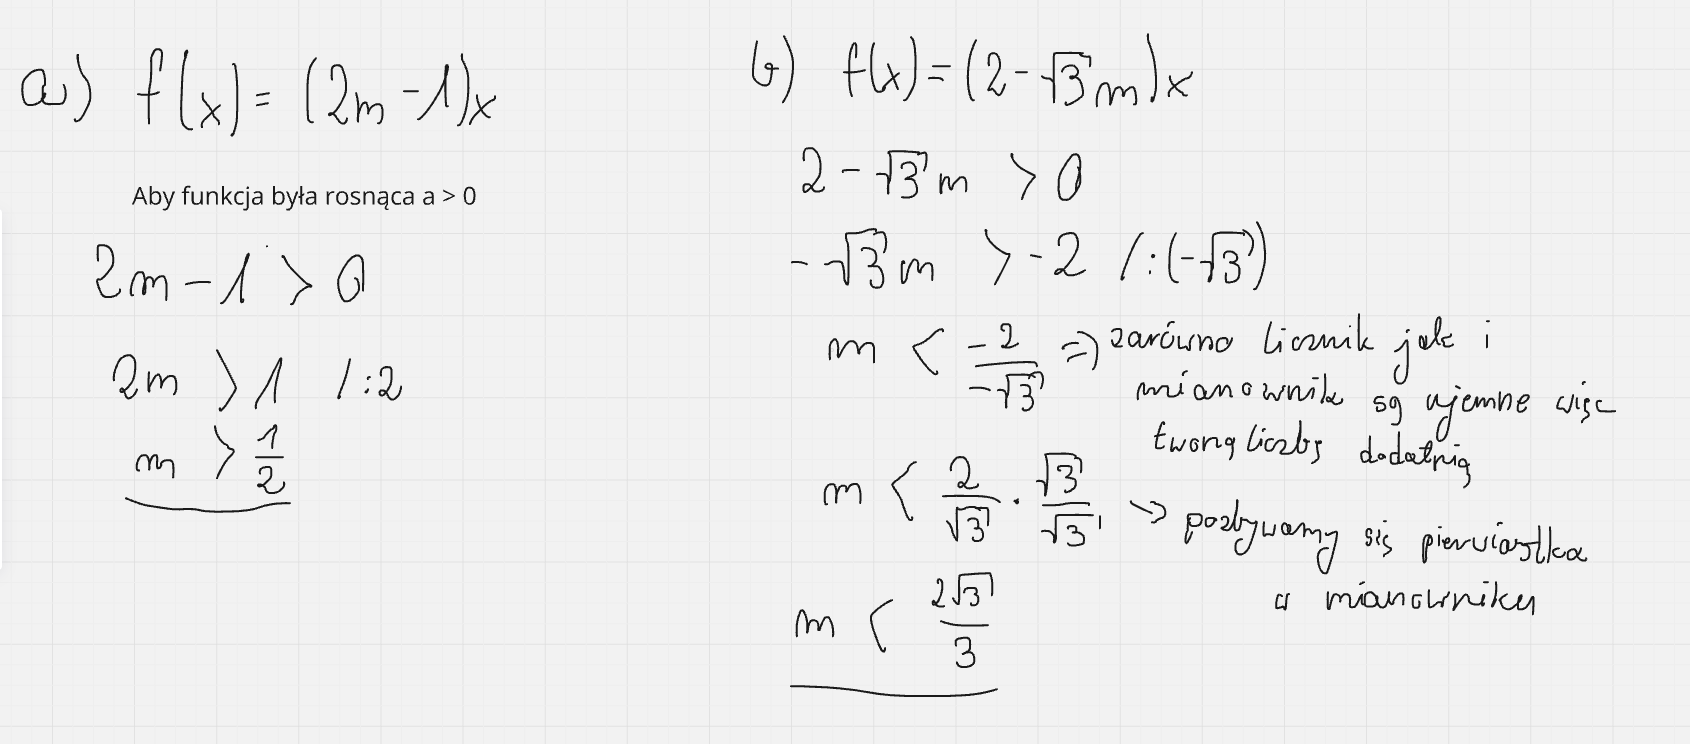 a) f(x) = (2m - 1)x
Aby funkcja była rosnąca a > 0
2m - 1 > 0
2m > 1 /:2
m > 1/2
b) f(x) = (2 - √3 m)x
2 - √3 m > 0
-√3 m > -2 /:(-√3)
m < -2/-√3 => zarówno licznik jak i
mianownik są ujemne więc
tworzą liczbę dodatnią
m < 2/√3 · √3/√3 -> pozbywamy się pierwiastka
w mianowniku
m < 2√3/3